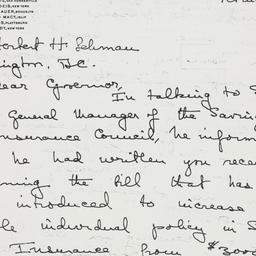 NEW YORK
AUER, BROOKLYN
MACY, ISLIP
S, PLATTSBURG
NEW YORK
Herbert H. Lehman
ington, D.C.
ear Governor,
In talking to
General Manager of the Savin
nsurance Council, he inform
he had written you rece
ning the bill that has
introduced to increase
le individual policy in S
Insurance from $3000